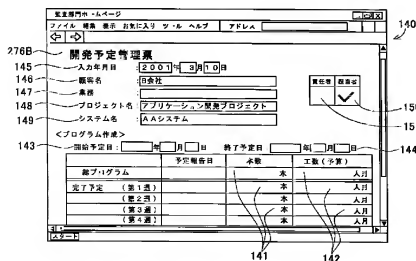 監査部門ホームページ
ファイル 編集 表示 お気に入り ツール ヘルプ アドレス
140
276B
開発予定管理票
145 入力年月日 2001年 3月10日
146 顧客名 B会社
147 業務
148 プロジェクト名 アプリケーション開発プロジェクト
149 システム名 AAシステム
責任者 担当者
150
151
<プログラム作成>
143 開始予定日: 年 月 日 終了予定日 年 月 日 144
予定報告日 本数 工数(予算)
総プログラム 本 人月
完了予定 (第1週) 本 人月
(第2週) 本 人月
(第3週) 本 人月
(第4週) 本 人月
スタート
141 142